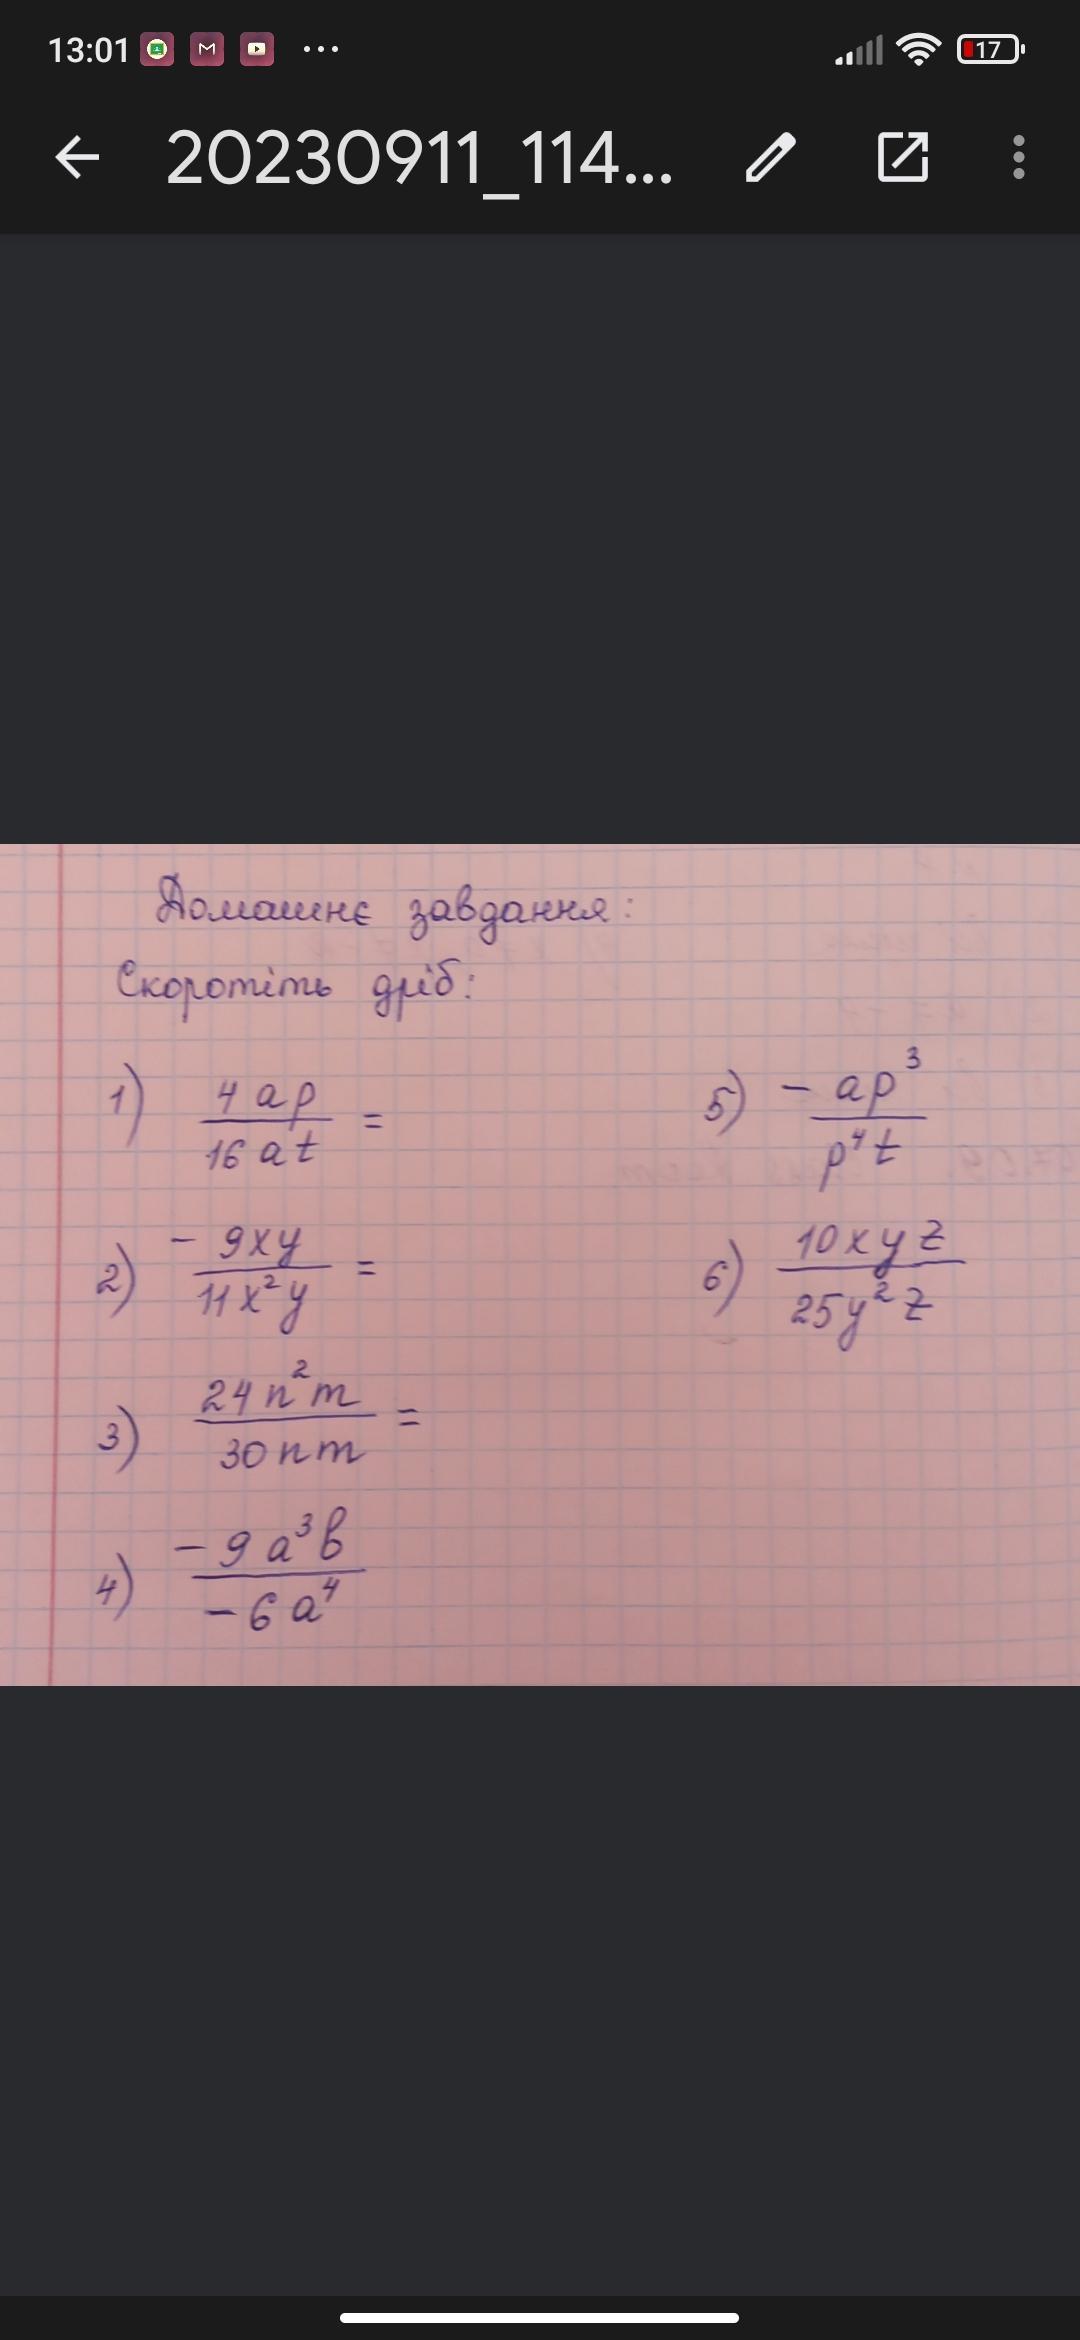 13:01 ... 17
20230911_114...
Домашнє завдання:
Скоротіть дріб:
1) 4ap/16at =
2) -9xy/11x²y =
3) 24n²m/30nm =
4) -9a³b/-6a⁴
5) -ap³/p⁴t
6) 10xyz/25y²z